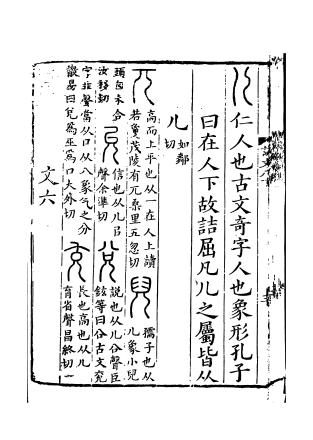 儿 仁人也古文奇字人也象形孔子
曰在人下故詰屈凡儿之屬皆从
儿 如鄰
切
兀 高而上平也从一在人上讀
若夐茂陵有兀桑里五忽切
兒 孺子也从
儿象小兒
頭囟未合
汝移切
允 信也从儿㠯
聲余準切
兌 說也从儿㕣聲臣
鉉等曰㕣古文兗
字非聲當从口从八象气之分
散易曰兌爲巫爲口大外切
充 長也高也从儿
育省聲昌終切
文六